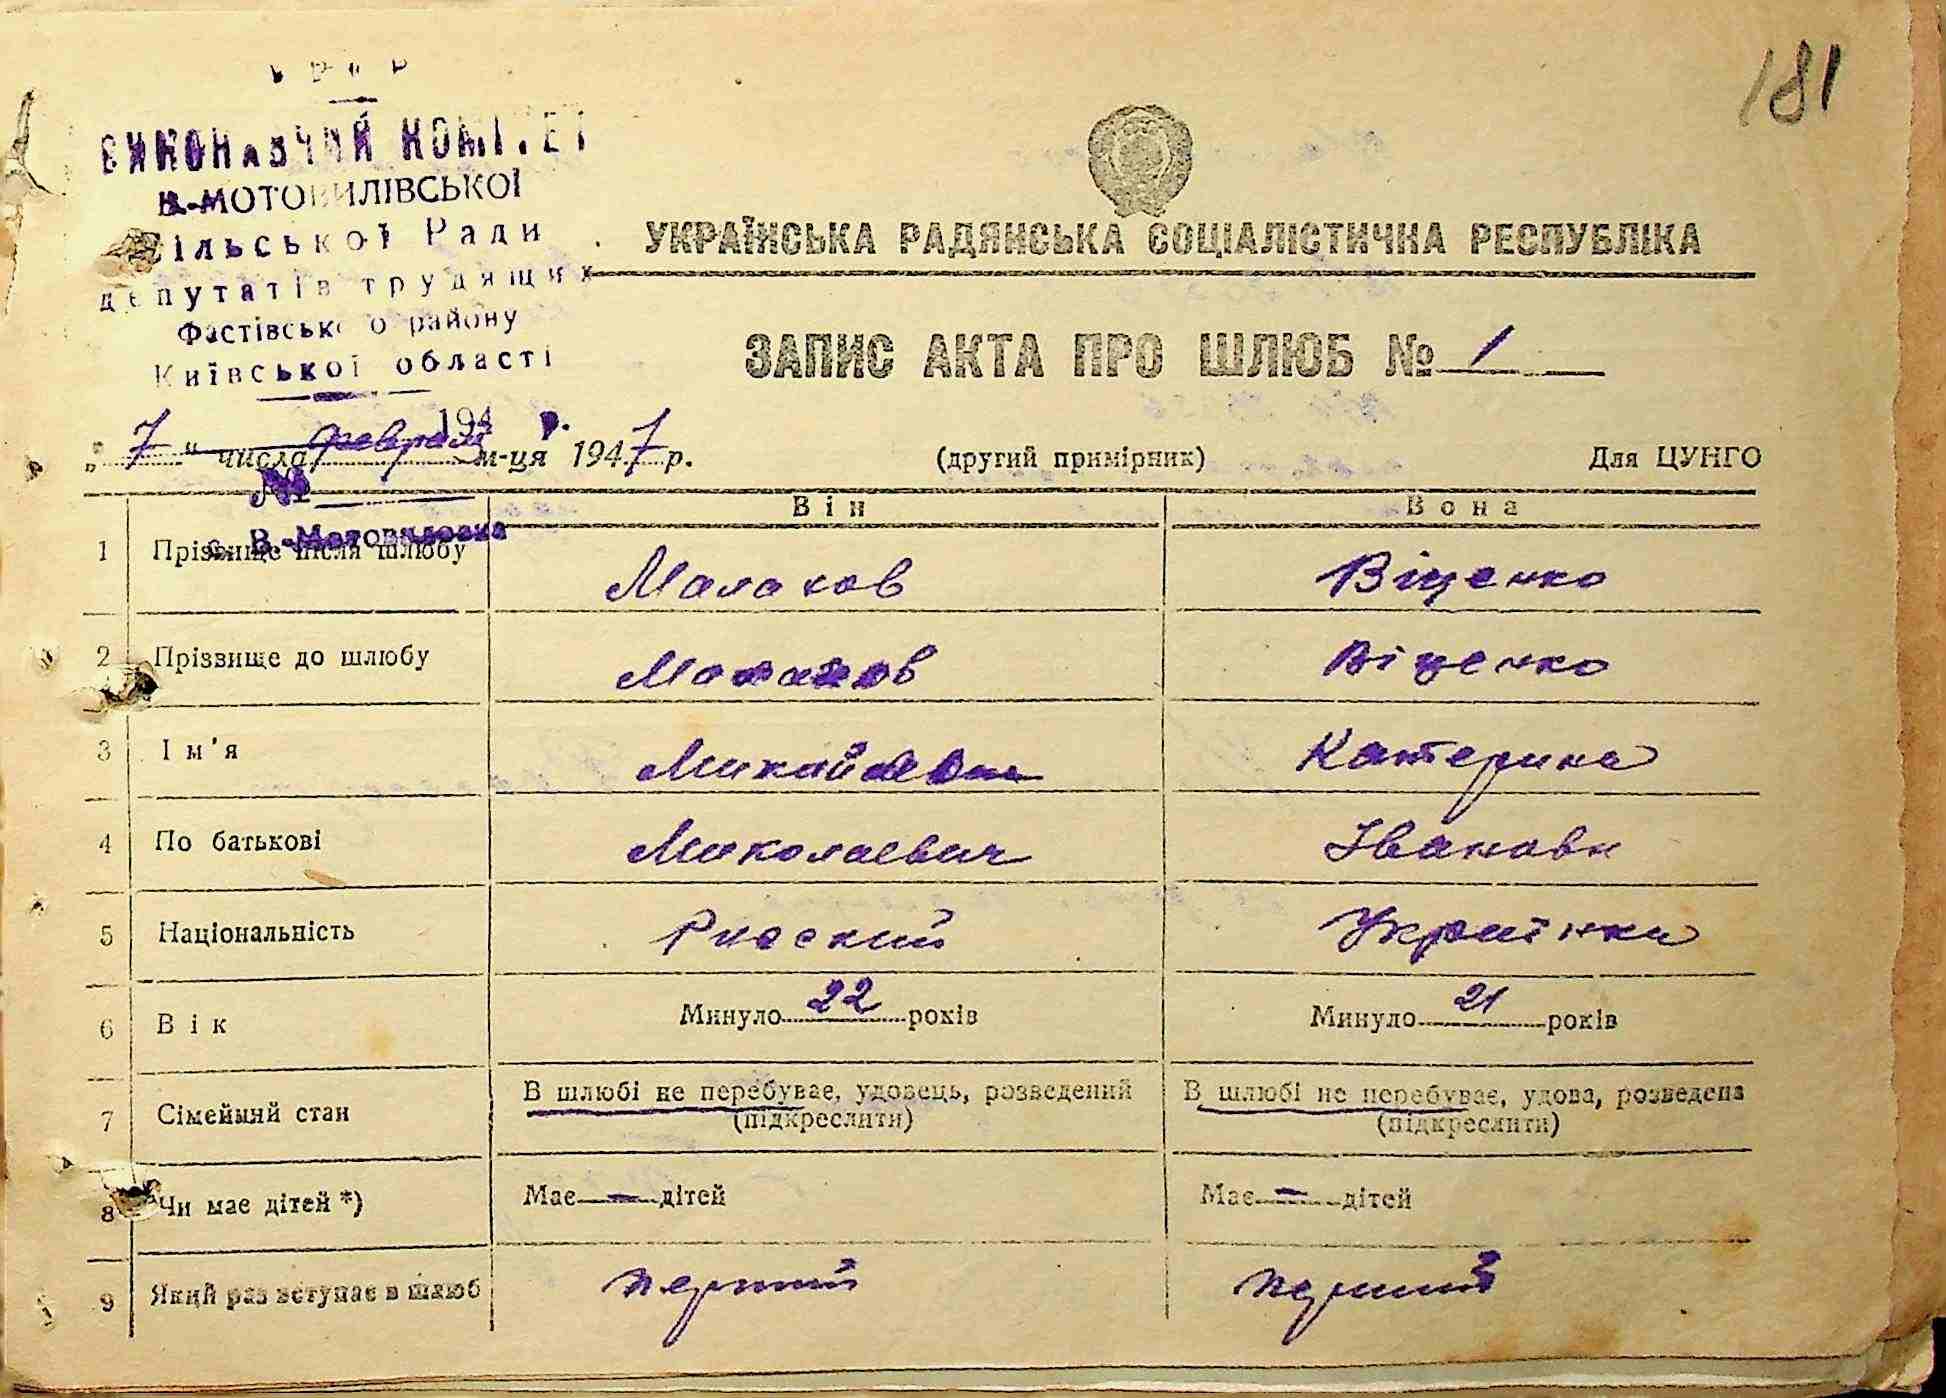 181
УРСР
ВИКОНАВЧИЙ КОМІТЕТ
В.-МОТОВИЛІВСЬКОЇ
Сільської Ради
депутатів трудящих
Фастівського району
Київської області
194 р.
№
с. В.-Мотовиловка
УКРАЇНСЬКА РАДЯНСЬКА СОЦІАЛІСТИЧНА РЕСПУБЛІКА
ЗАПИС АКТА ПРО ШЛЮБ № 1
„ 7 " числа февраля м-ця 1947 р. (другий примірник) Для ЦУНГО
Він Вона
1 Прізвище після шлюбу Малахов Віценко
2 Прізвище до шлюбу Малахов Віценко
3 Ім'я Катерина
4 По батькові Миколаевич Івановн
5 Національність Руский Украінка
6 Вік Минуло 22 років Минуло 21 років
7 Сімейний стан В шлюбі не перебуває, удовець, розведений В шлюбі не перебуває, удова, розведена
(підкреслити) (підкреслити)
8 Чи має дітей *) Має — дітей Має — дітей
9 Який раз вступає в шлюб перший перший